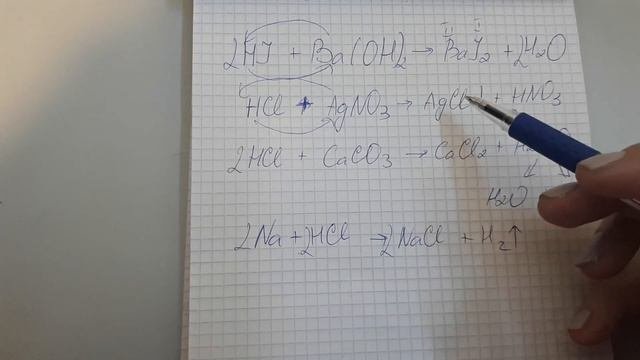 II I
2HJ + Ba(OH)2 → BaJ2 + 2H2O
HCl + AgNO3 → AgCl↓ + HNO3
2HCl + CaCO3 → CaCl2 +
H2O
2Na + 2HCl → 2NaCl + H2↑